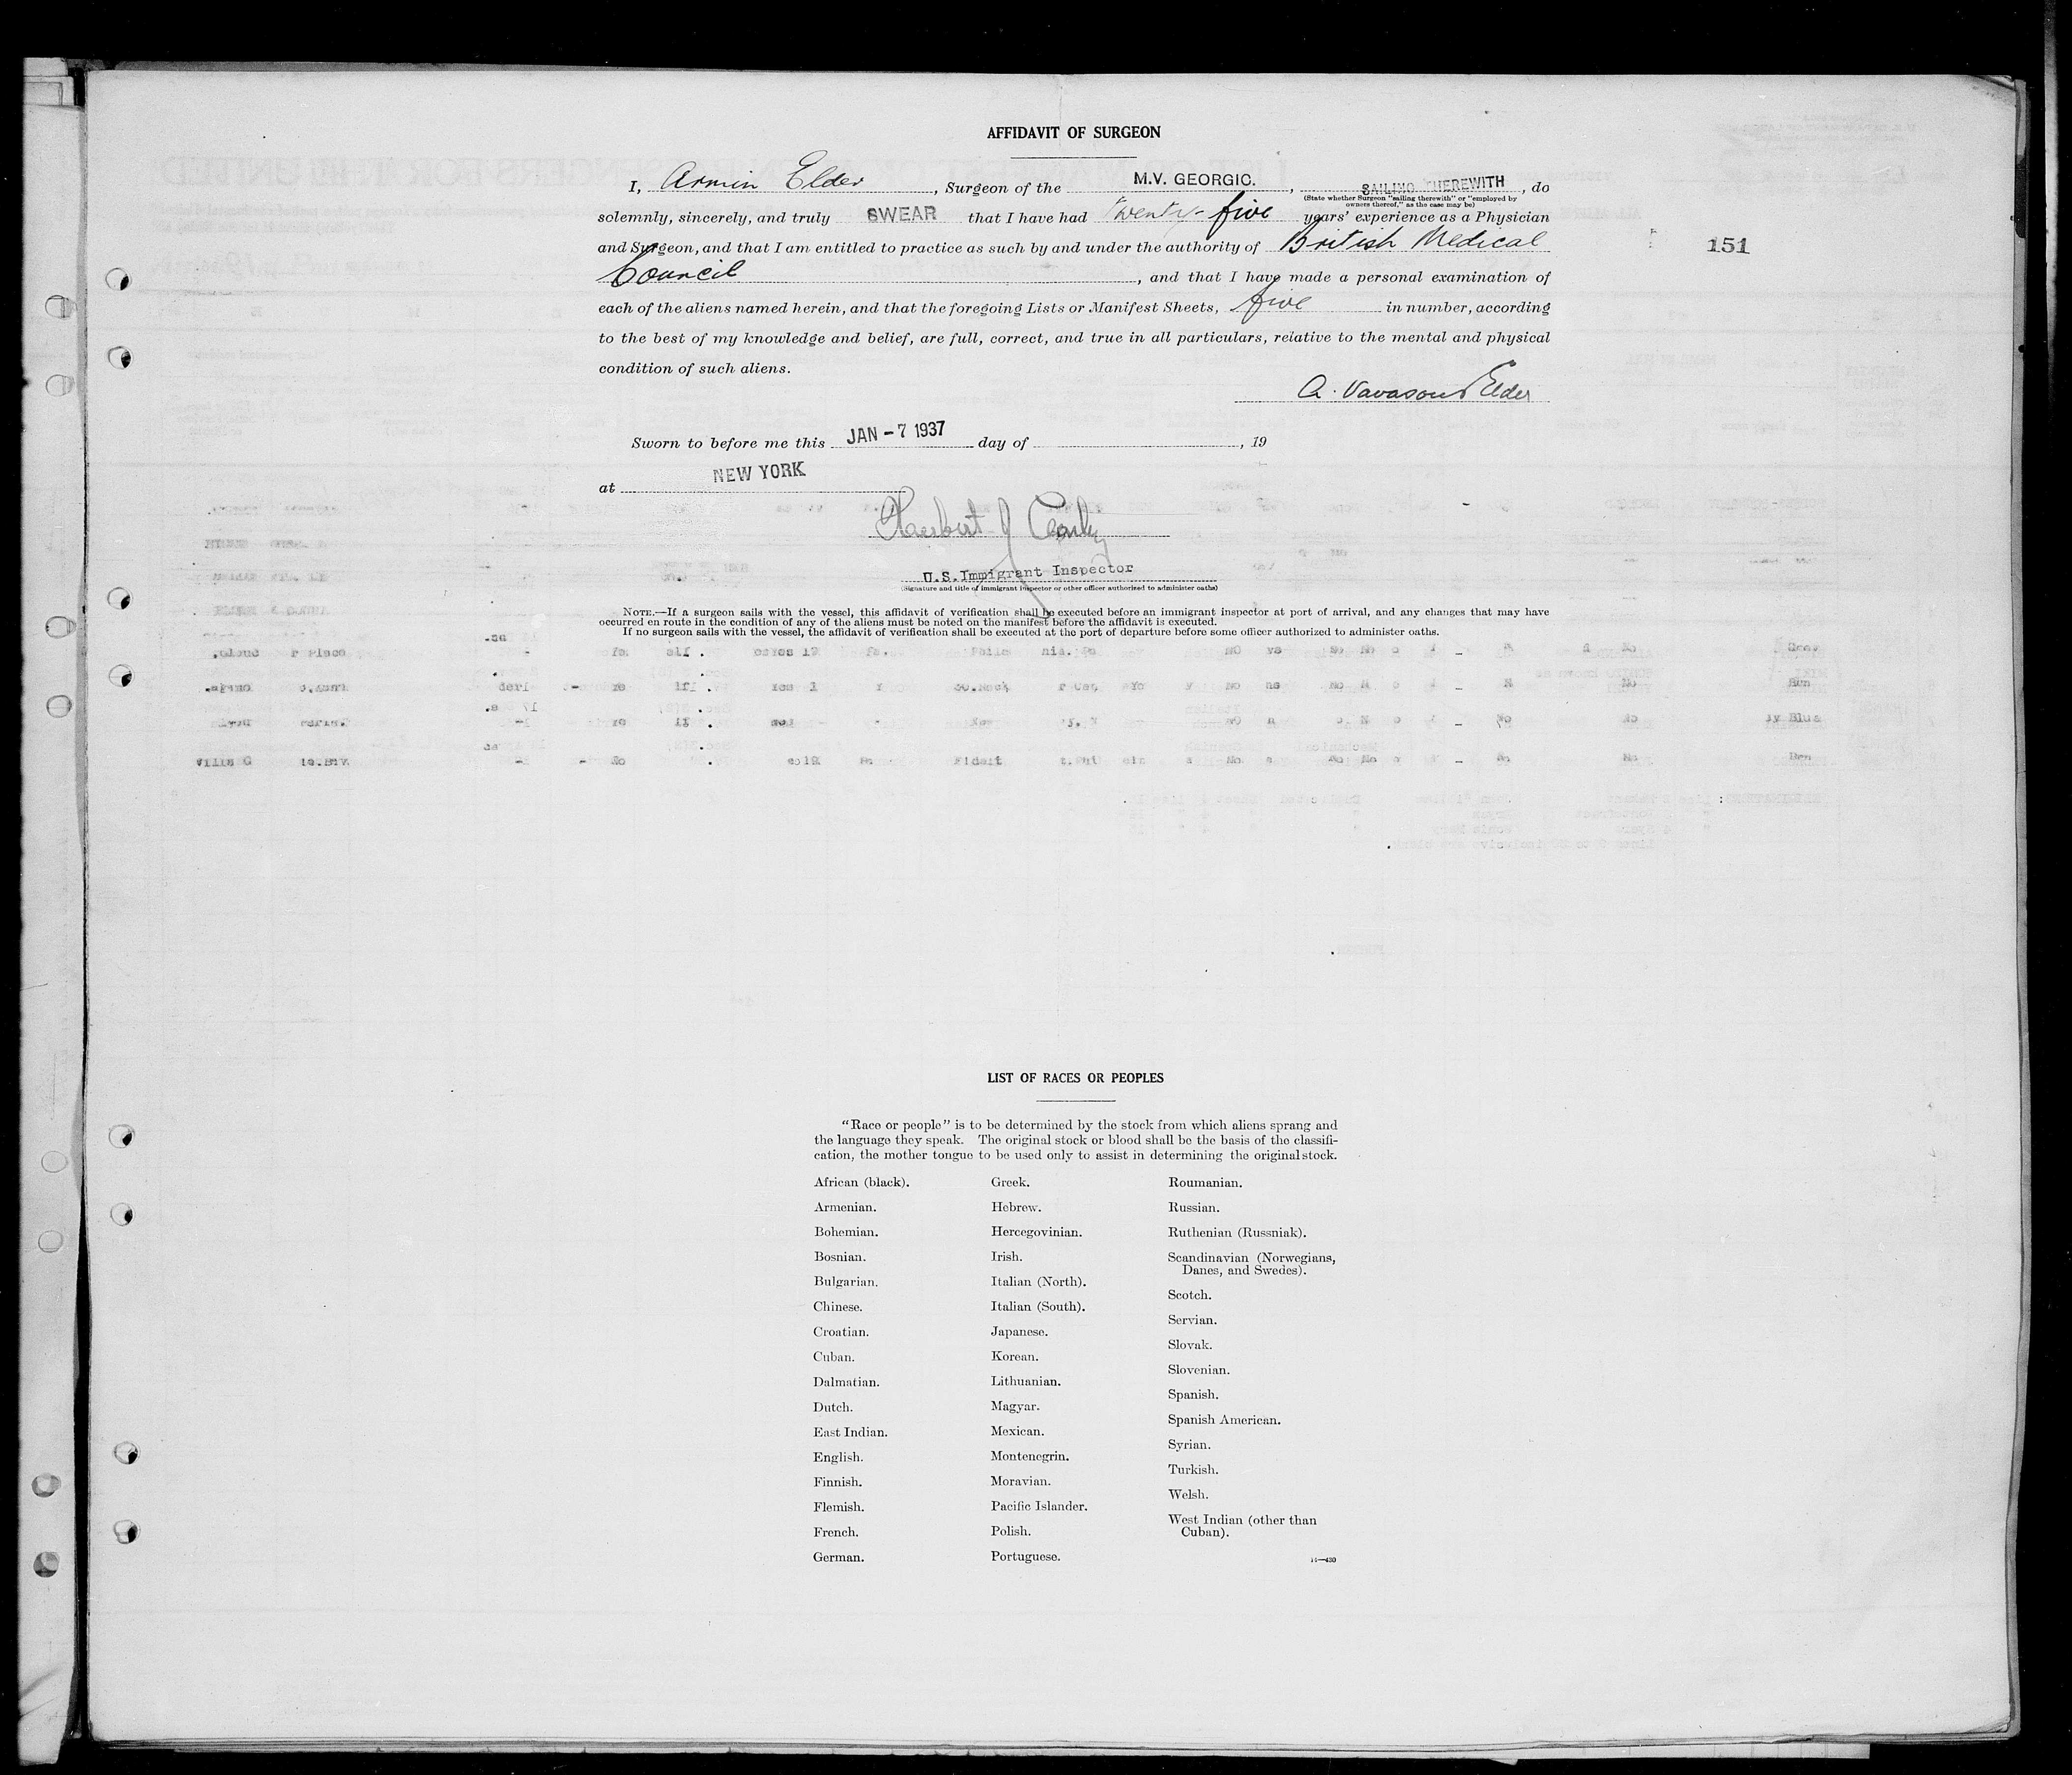 AFFIDAVIT OF SURGEON
I, Armin Elder, Surgeon of the M.V. GEORGIC., SAILING THEREWITH, do
(State whether Surgeon "sailing therewith" or "employed by
owners thereof," as the case may be)
solemnly, sincerely, and truly SWEAR that I have had Twenty-five years' experience as a Physician
and Surgeon, and that I am entitled to practice as such by and under the authority of British Medical
151
Council, and that I have made a personal examination of
each of the aliens named herein, and that the foregoing Lists or Manifest Sheets, five in number, according
to the best of my knowledge and belief, are full, correct, and true in all particulars, relative to the mental and physical
condition of such aliens.
A. Vavasour Elder
Sworn to before me this JAN -7 1937 day of , 19
at NEW YORK
Herbert J
U.S.Immigrant Inspector
(Signature and title of immigrant inspector or other officer authorized to administer oaths)
NOTE.—If a surgeon sails with the vessel, this affidavit of verification shall be executed before an immigrant inspector at port of arrival, and any changes that may have
occurred en route in the condition of any of the aliens must be noted on the manifest before the affidavit is executed.
If no surgeon sails with the vessel, the affidavit of verification shall be executed at the port of departure before some officer authorized to administer oaths.
LIST OF RACES OR PEOPLES
"Race or people" is to be determined by the stock from which aliens sprang and
the language they speak. The original stock or blood shall be the basis of the classifi-
cation, the mother tongue to be used only to assist in determining the original stock.
African (black).
Armenian.
Bohemian.
Bosnian.
Bulgarian.
Chinese.
Croatian.
Cuban.
Dalmatian.
Dutch.
East Indian.
English.
Finnish.
Flemish.
French.
German.
Greek.
Hebrew.
Hercegovinian.
Irish.
Italian (North).
Italian (South).
Japanese.
Korean.
Lithuanian.
Magyar.
Mexican.
Montenegrin.
Moravian.
Pacific Islander.
Polish.
Portuguese.
Roumanian.
Russian.
Ruthenian (Russniak).
Scandinavian (Norwegians,
Danes, and Swedes).
Scotch.
Servian.
Slovak.
Slovenian.
Spanish.
Spanish American.
Syrian.
Turkish.
Welsh.
West Indian (other than
Cuban).